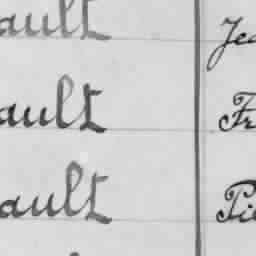 ault Jea
ault Fr
ault Pie